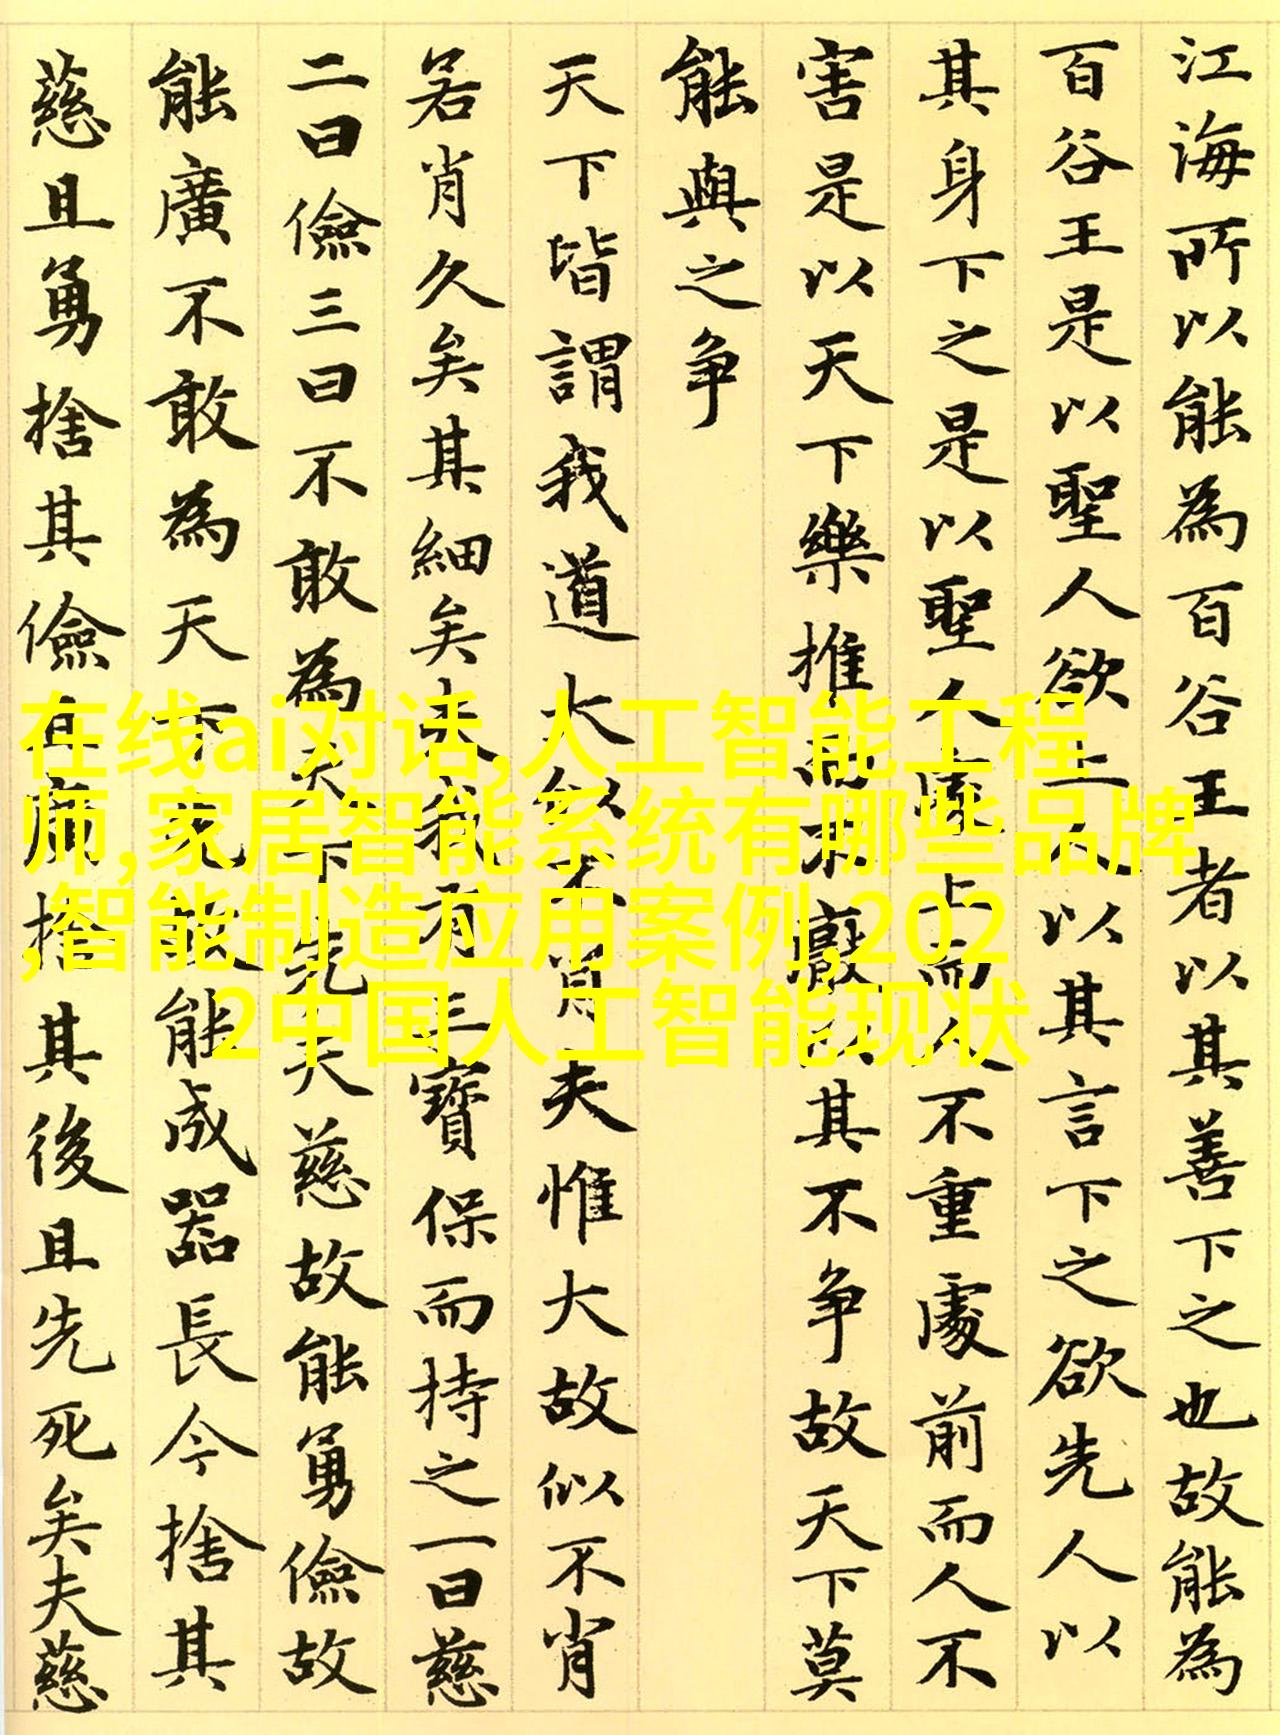 江海所以能為百谷王者以其善下之也故能為
百谷王是以聖人欲上人以其言下之欲先人以
其身下之是以聖人處上而人不重處前而人不
害是以天下樂推而不厭以其不争故天下莫
能與之争
天下皆謂我道大似不肖夫惟大故似不肖
若肖久矣其細矣夫我有三寶保而持之一曰慈
二曰儉三曰不敢為天下先夫慈故能勇儉故
能廣不敢為天下先故能成器長今捨其
慈且勇捨其儉且廣捨其後且先死矣夫慈
在线ai对话,人工智能工程
师,家居智能系统有哪些品牌
,智能制造应用案例,202
2中国人工智能现状